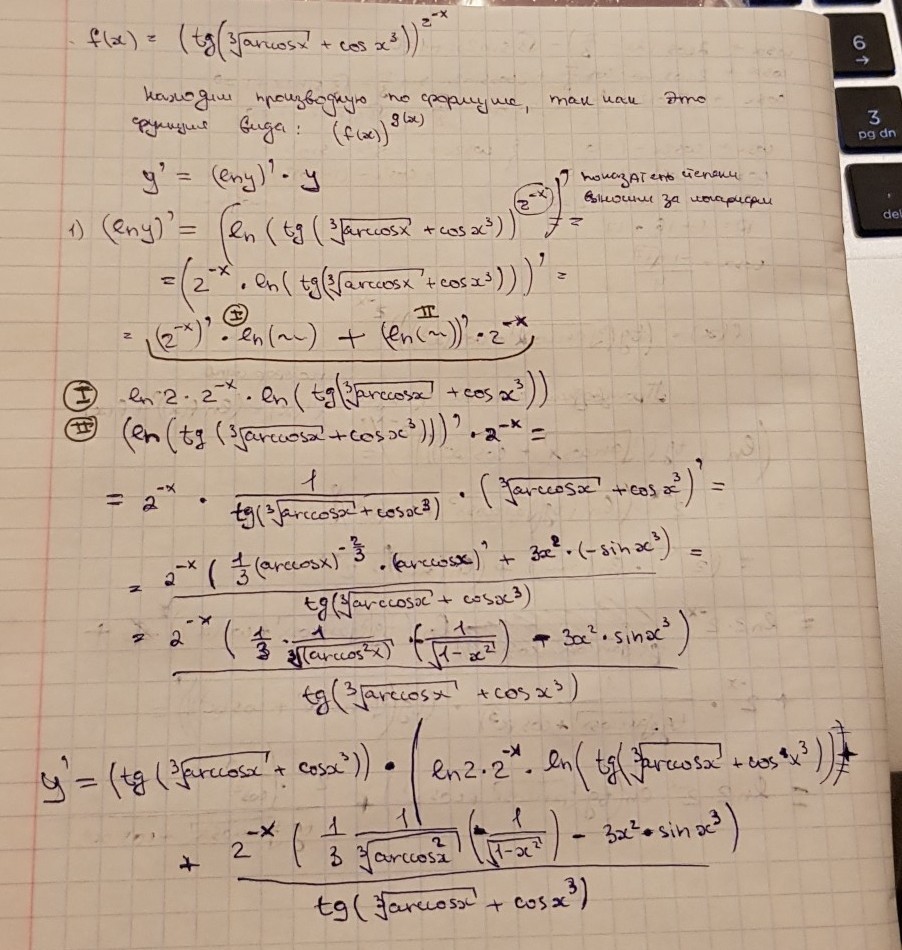 f(x) = (tg(∛arccosx + cos x³))^2^-x
находим производную по формуле, так как это
функция вида: (f(x))^g(x)
y' = (lny)' · y
показатель степени
выносим за логарифм
1) (lny)' = (ln(tg(∛arccosx + cosx³))^2^-x)' =
= (2^-x · ln(tg(∛arccosx + cosx³)))' =
I II
= (2^-x)' · ln(~) + (ln(~))' · 2^-x
I ln2 · 2^-x · ln(tg(∛arccosx + cosx³))
II (ln(tg(∛arccosx + cosx³)))' · 2^-x =
= 2^-x · 1/tg(∛arccosx + cosx³) · (∛arccosx + cosx³)' =
= 2^-x (1/3 (arccosx)^-2/3 · (arccosx)' + 3x² · (-sinx³)) / tg(∛arccosx + cosx³) =
= 2^-x (1/3 · 1/∛(arccos²x) · (-1/√1-x²) - 3x² · sinx³) / tg(∛arccosx + cosx³)
y' = (tg(∛arccosx + cosx³)) · (ln2 · 2^-x · ln(tg(∛arccosx + cos x³)) +
+ 2^-x (1/3 1/∛arccos²x (-1/√1-x²) - 3x² · sinx³) / tg(∛arccosx + cosx³)
6
→
3
pg dn
.
del